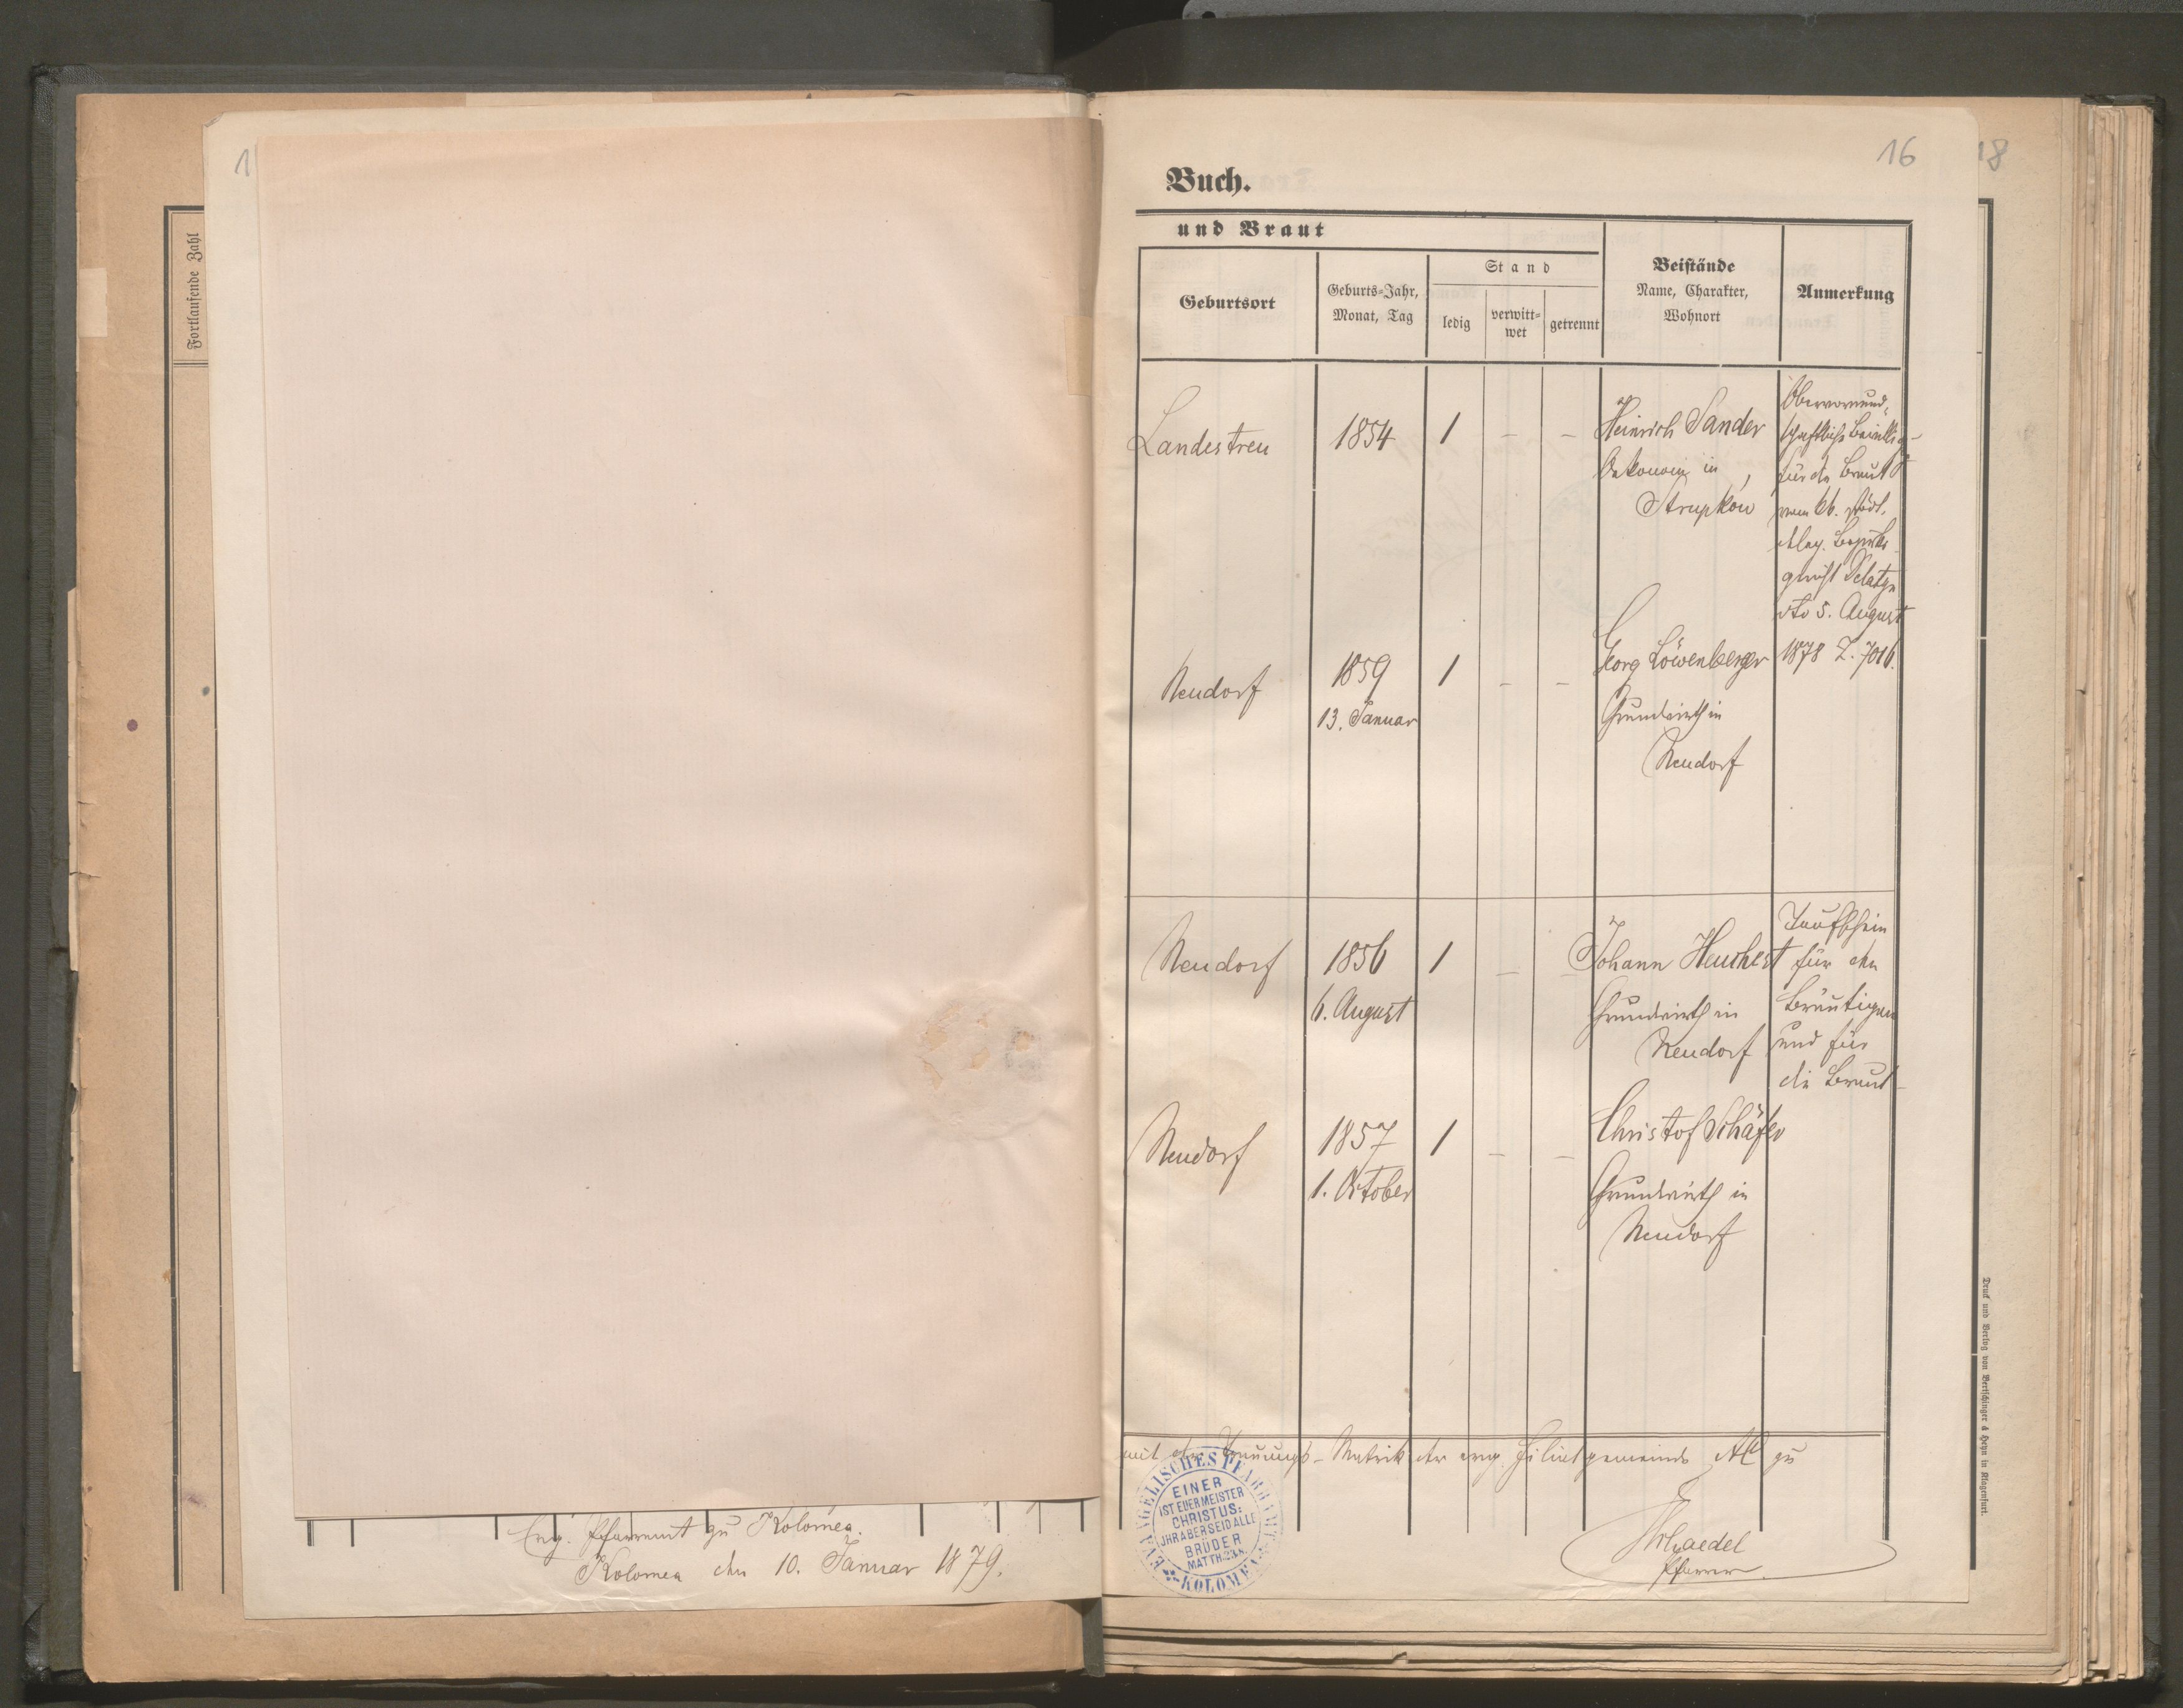 Fortlaufende Zahl
1
Evg. Pfarramt zu Kolomea.
Kolomea den 10. Januar 1879.
16
18
Buch.
und Braut
Geburtsort
Geburts-Jahr,
Monat, Tag
Stand
ledig
verwitt-
wet
getrennt
Beistände
Name, Charakter,
Wohnort
Anmerkung
Landestreu
1854
1 – –
Heinrich Sander
Oekonom in
Strupków
Obervormund-
schaftliche Bewillig-
für die Braut
vom kk. städt.
deleg. Bezirks-
gericht Delatyn
dto 5. August
1878 Z. 7016.
Neudorf
1859
13. Januar
1 – –
Georg Löwenberger
Grundwirth in
Neudorf
Neudorf
1856
6. August
1 – –
Johann Heuchert
Grundwirth in
Neudorf
Taufschein
für den
Bräutigam
und für
die Braut
Neudorf
1857
1. October
1 – –
Christof Schäfer
Grundwirth in
Neudorf
mit der Trauungs-Matrik der evg. Filialgemeinde zu
EVANGELISCHES PFARRAMT
KOLOMEA
EINER
IST EUER MEISTER
CHRISTUS:
IHR ABER SEID ALLE
BRÜDER
MATTH. 23,8.
Pfarrer
Druck und Verlag von Bertschinger & Heyn in Klagenfurt.